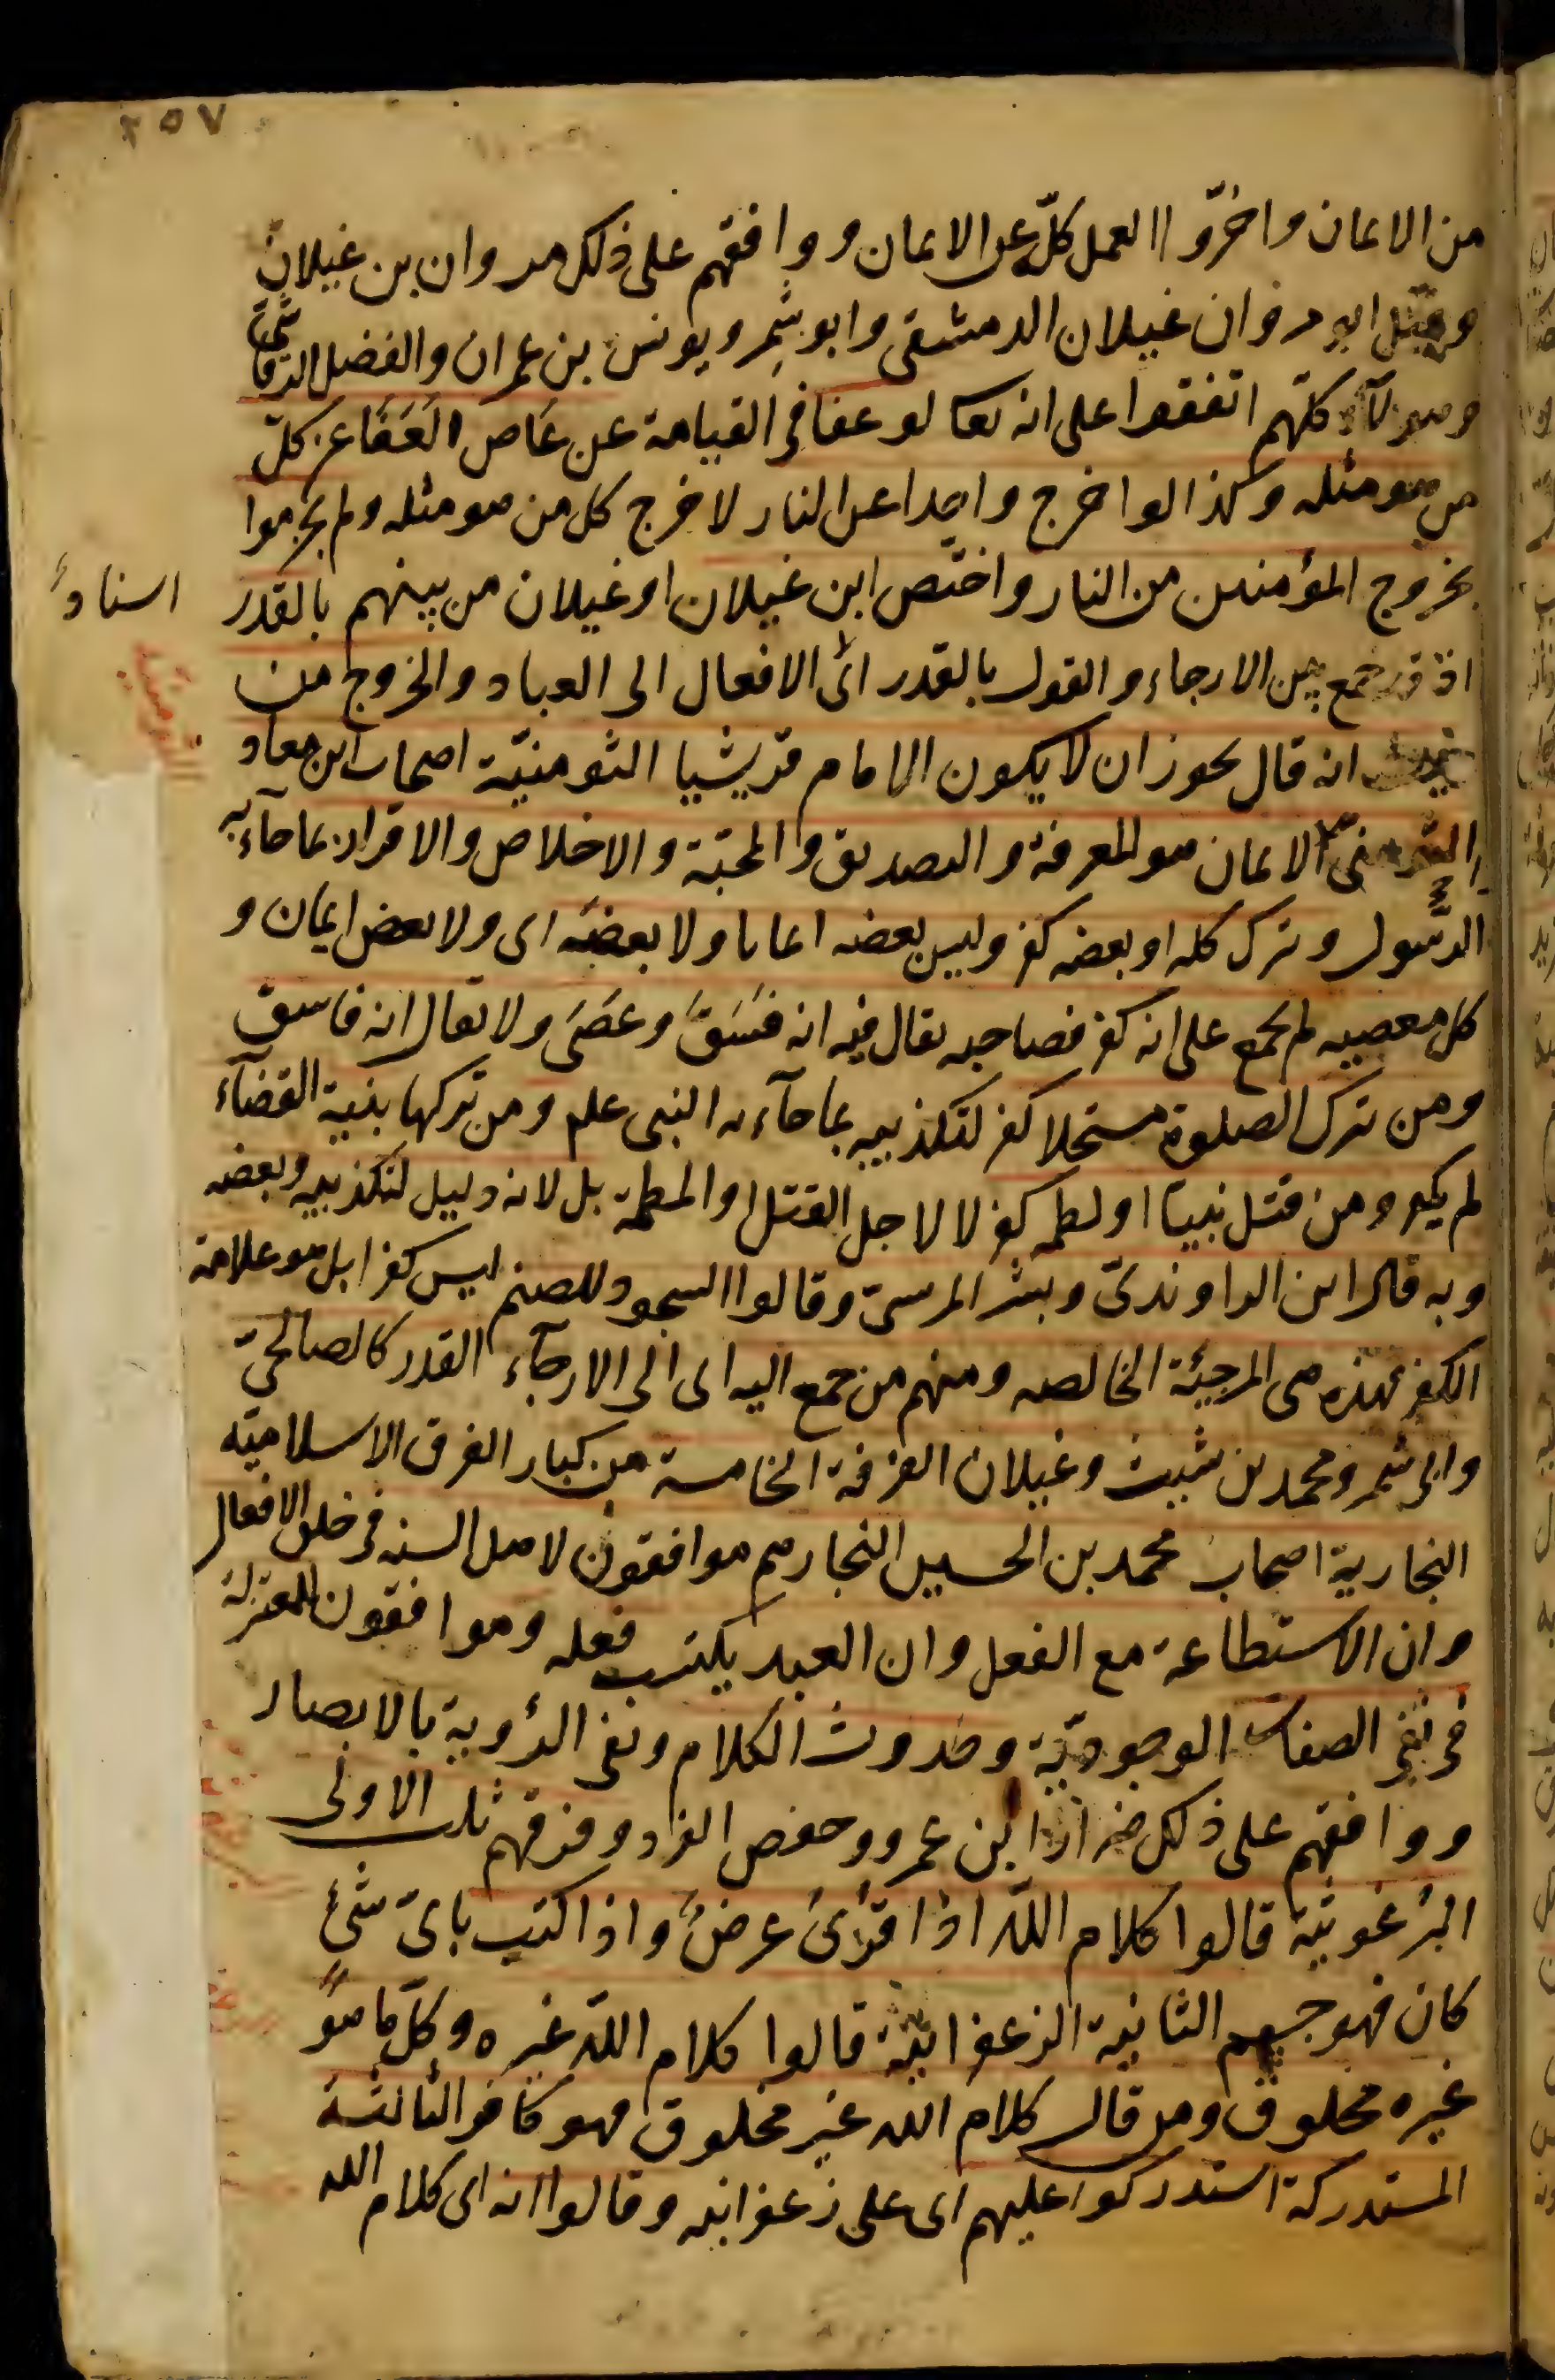 ٢٥٧
من الايمان واخروا العمل كلّه عن الايمان ووافقهم على ذلك مروان بن غيلان
وقيل ابو مروان غيلان الدمشقى وابو شِمر ويونس بن عمران والفضل الرقاشى
وهولآء كلّهم اتفقوا على انه تعا لو عفا فى القيامة عن عَاص لَعَفَا عن كلّ
من هو مثله وكذا لو اخرج واحدا عن النار لاخرج كل من هو مثله ولم يجزموا
بخروج المؤمنين من النار واختصّ ابن غيلان او غيلان من بينهم بالقدر
اسنادُ
اذ قد جمع بين الارجاء والقول بالقدر اىْ الافعال الى العباد والخروج من
حيث انه قال يجوز ان لا يكون الامام قريشيا الثومنيّة اصحاب ابن معاد
الثومنىّ الايمان هو المعرفة والتصديق والمحبّة والاخلاص والاقرار بما جآء به
الرّسول وترك كله او بعضه كفر وليس بعضه ايمانا ولا بعضَه اى ولا بعض ايمان و
كل معصيه لم يجمع على انه كفر فصاحبه يقال فيه انه فَسَقَ وعَصَى ولا يقال انه فاسق
ومن ترك الصلوة مستحلا كفر لتكذيبه بما جآء به النبى علم ومن تركها بنية القضآء
لم يكفر ومن قتل نبيا او لطمه كفر لا لاجل القتل او اللطمة بل لانه دليل لتكذيبه وبعضه
وبه قال ابن الراوندىّ وبشر المرسىّ وقالوا السجود للصنم ليس كفرا بل هو علامة
الكفر فهذه هى المرجئة الخالصه ومنهم من جمع اليه اى الى الارجآء القدر كالصالحىّ
وابى شمر ومحمد بن شبيث وغيلان الفرقة الخامسة من كبار الفرق الاسلاميّه
النجارية اصحاب محمد بن الحسين النجار هم موافقون لاهل السنه فى خلق الافعال
وان الاستطاعة مع الفعل وان العبد يكتسب فعله وموافقون للمعتزلة
فى نفى الصفات الوجوديّة وحدوث الكلام ونفى الرؤية بالابصار
ووافقهم على ذلك ضرار ابن عمرو وحفص الفرد وفرقهم ثلث الاولى
البُرغوثية قالوا كلام اللّه اذا قُرِئَ عرضٌ واذا كتب باىّ شئٍ
كان فهو جسم الثانية الزعفرانيّة قالوا كلام اللّه غيره وكلّ ما هوَ
غيره مخلوق ومن قال كلام الله غير مخلوق فهو كافر الثالثة
المستدركة استدركوا عليهم اى على زعفرانيه وقالوا انه اى كلام الله